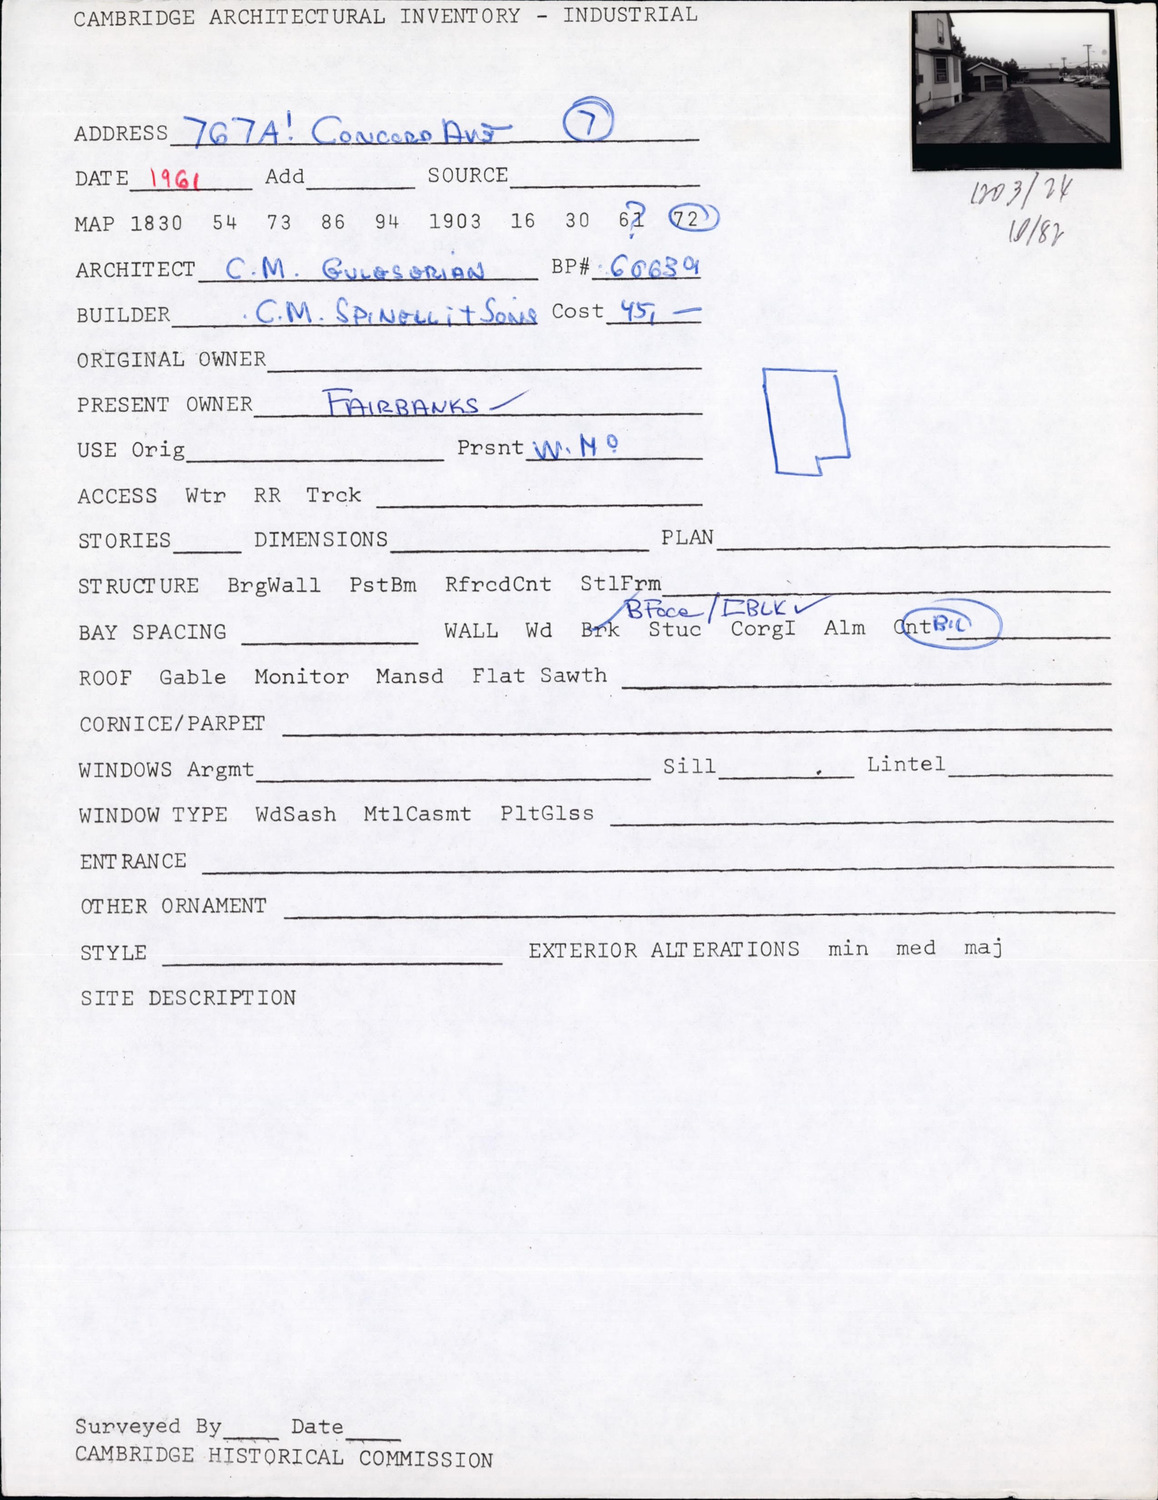 CAMBRIDGE ARCHITECTURAL INVENTORY - INDUSTRIAL
ADDRESS 767A! CONCORD AVE 7
DATE 1961 Add SOURCE
1203/24
10/82
MAP 1830 54 73 86 94 1903 16 30 61? 72
ARCHITECT C.M. BP# 60639
BUILDER C.M. SPINELLI + SONS Cost 45, —
ORIGINAL OWNER
PRESENT OWNER FAIRBANKS ✓
USE Orig Prsnt W. Ho
ACCESS Wtr RR Trck
STORIES DIMENSIONS PLAN
STRUCTURE BrgWall PstBm RfrcdCnt StlFrm
BFace / CBLK ✓
BAY SPACING WALL Wd Brk Stuc CorgI Alm Cnt
ROOF Gable Monitor Mansd Flat Sawth
CORNICE/PARPET
WINDOWS Argmt Sill Lintel
WINDOW TYPE WdSash MtlCasmt PltGlss
ENTRANCE
OTHER ORNAMENT
STYLE EXTERIOR ALTERATIONS min med maj
SITE DESCRIPTION
Surveyed By Date
CAMBRIDGE HISTORICAL COMMISSION